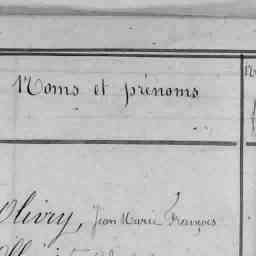 Noms et prénoms
Olivry, Jean Marie François